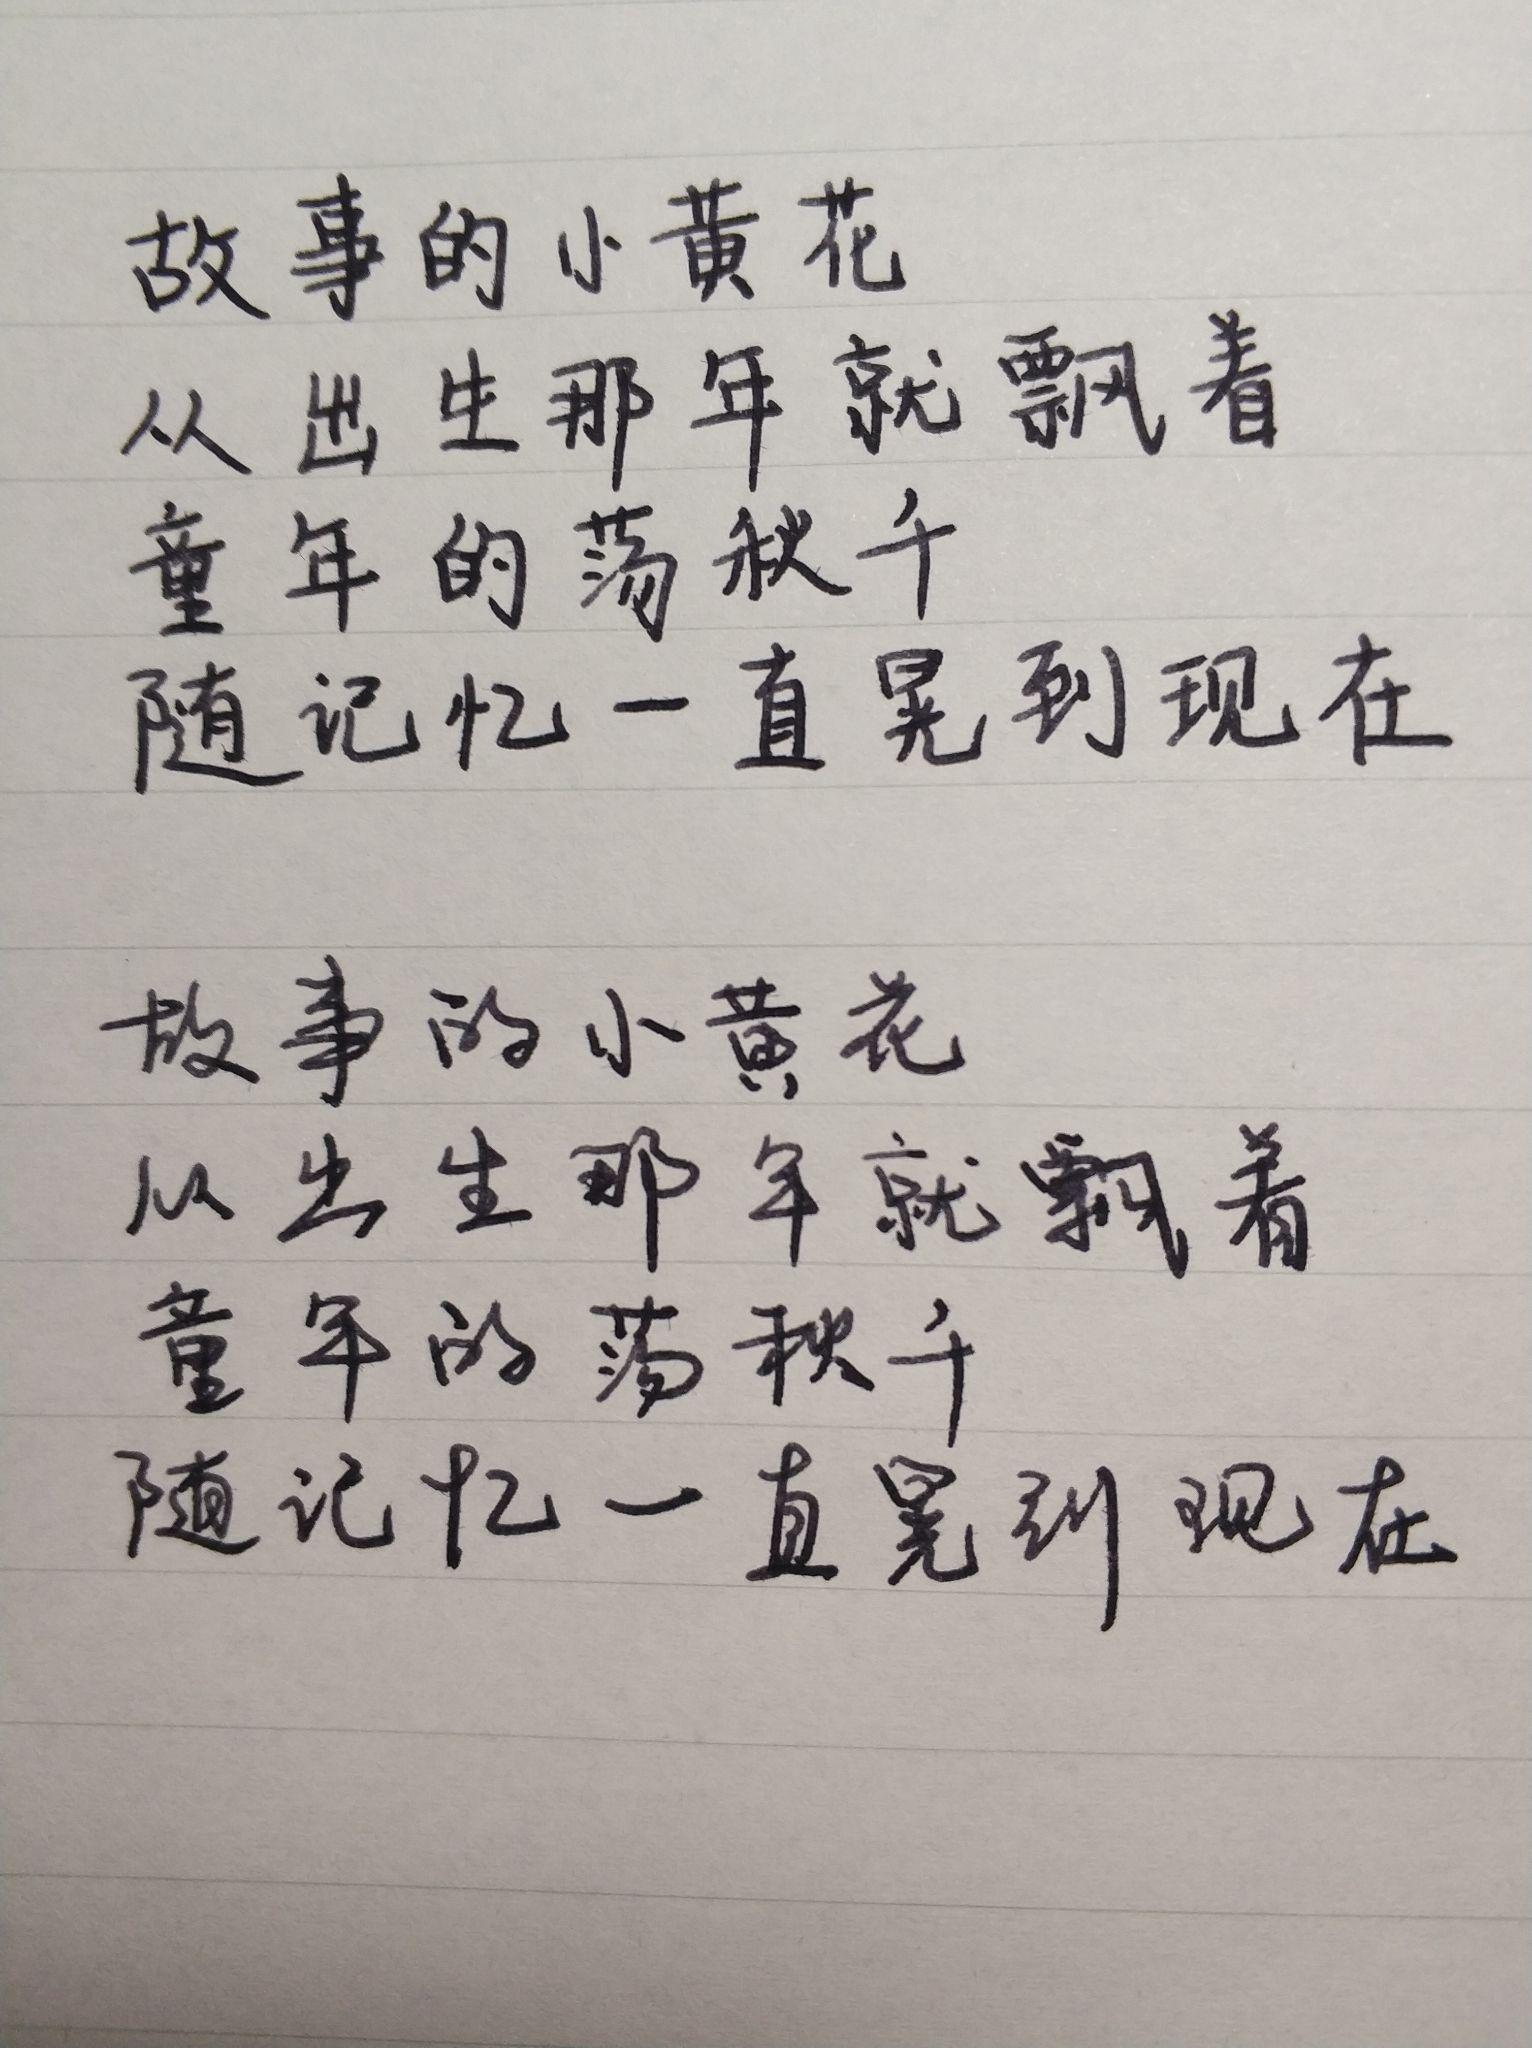 故事的小黄花
从出生那年就飘着
童年的荡秋千
随记忆一直晃到现在
故事的小黄花
从出生那年就飘着
童年的荡秋千
随记忆一直晃到现在